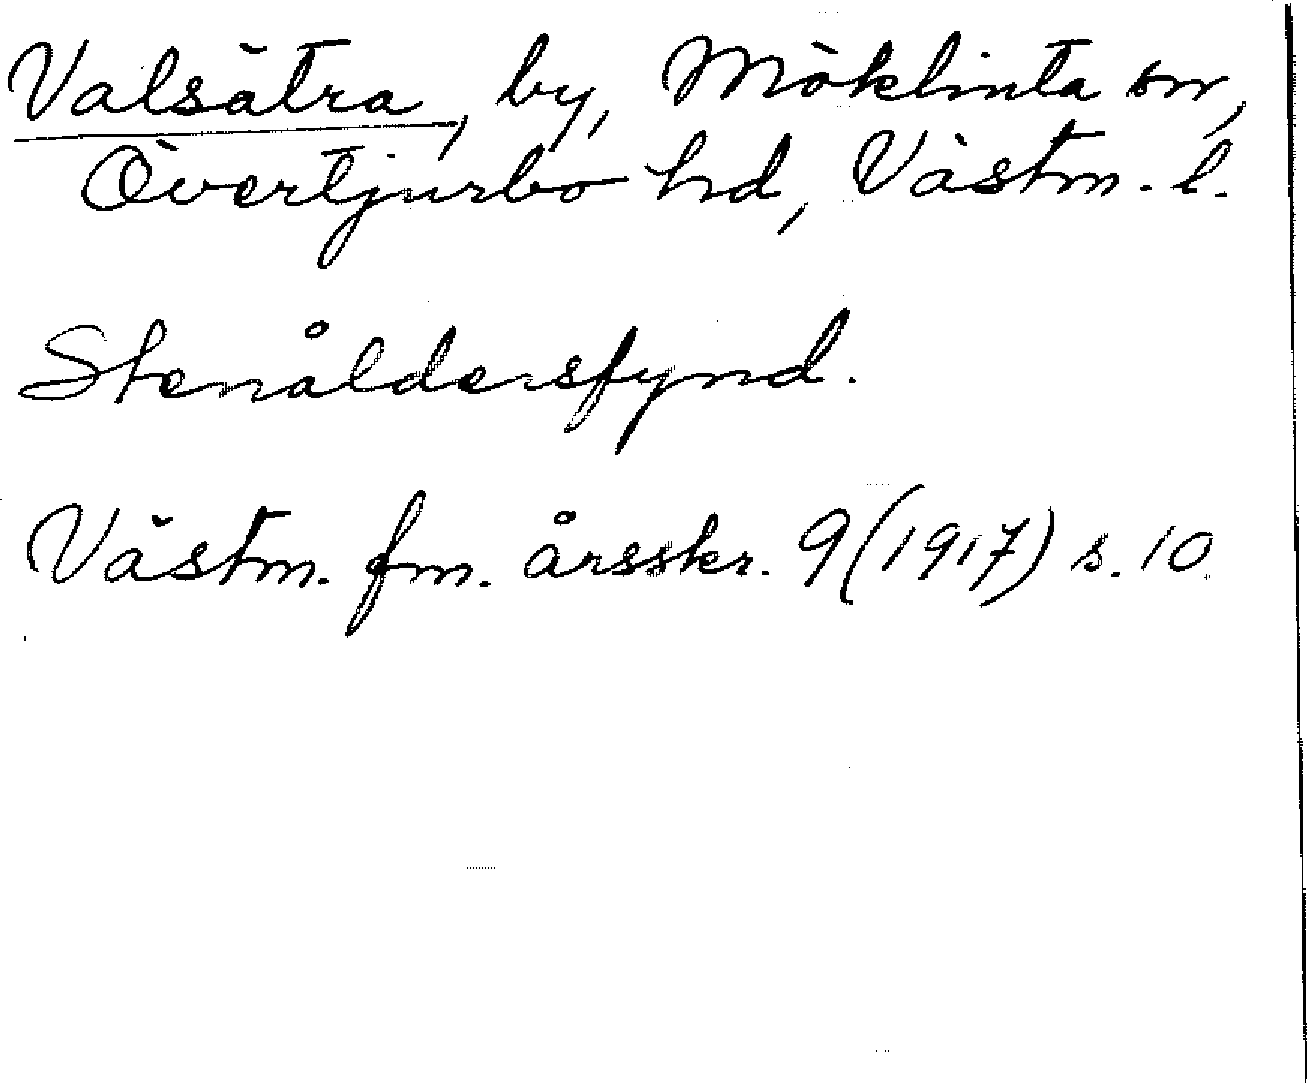 Valsätra, by, Möklinta sn,
Övertjurbo hd, Västm. l.
Stenåldersfynd.
Västm. fm. årsskr. 9 (1917) s. 10